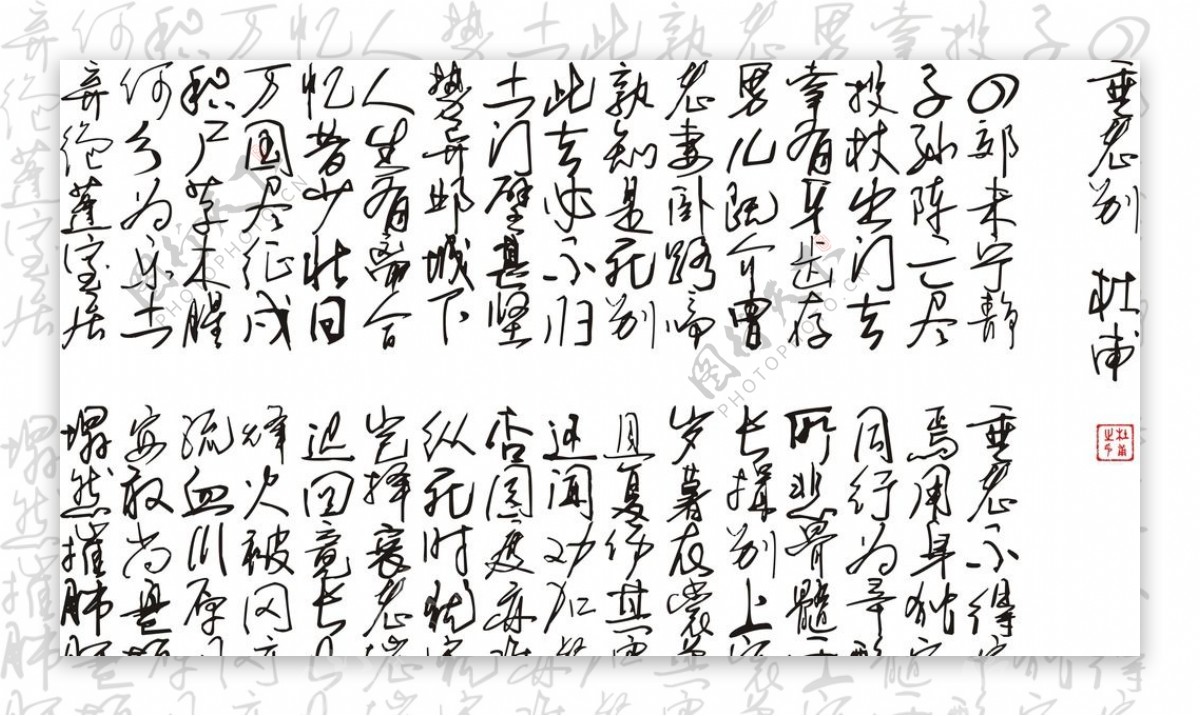 垂老别 杜甫
四郊未宁静 垂老不得安
子孙阵亡尽 焉用身独完
投杖出门去 同行为辛酸
幸有牙齿存 所悲骨髓干
男儿既介胄 长揖别上官
老妻卧路啼 岁暮衣裳单
孰知是死别 且复伤其寒
此去必不归 还闻劝加餐
土门壁甚坚 杏园度亦难
势异邺城下 纵死时犹宽
人生有离合 岂择衰老端
忆昔少壮日 迟回竟长叹
万国尽征戍 烽火被冈峦
积尸草木腥 流血川原丹
何乡为乐土 安敢尚盘桓
弃绝蓬室居 塌然摧肺肝